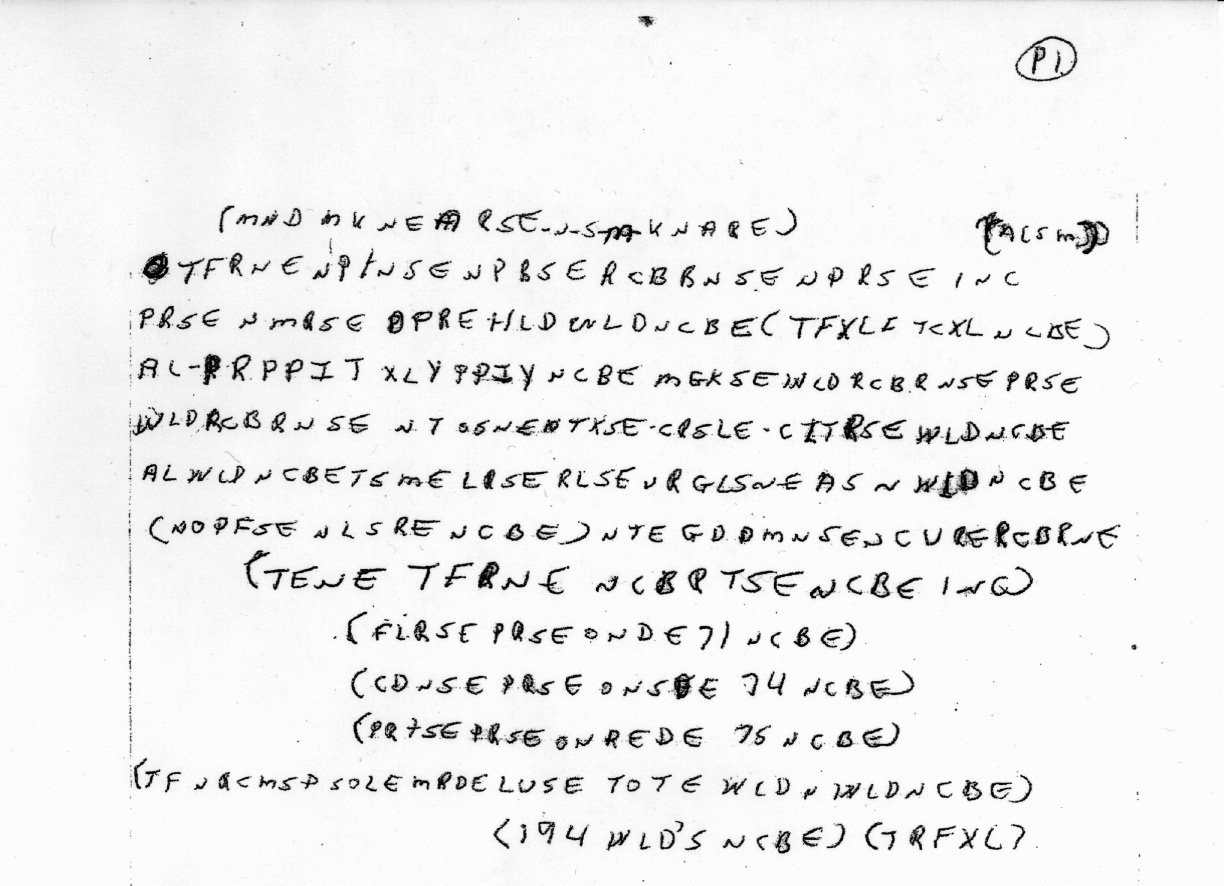 P1
(MND MKNEARSE-N-S-M-KNARE) (ALSM)
TFRNE NPINSE NPBSE RCBBNSE NPRSE INC
PRSE NMRSE OPRE HLD WLD NCBE (TFXLF TCXL NCBE)
AL-PRPPIT XLY PPIY NCBE MGKSE WLD RCBRNSE PRSE
WLD RCBRNSE NT SGNENTXSE-CRSLE-CITRSE WLD NCBE
AL WLD NCBE TSME LRSE RLSE URGLSNE AS N WLD NCBE
(NOPFSE NLSRE NCBE) NTEGDDMNSENCURERCBRNE
(TENE TFRNE NCBRTSE NCBE INC)
(FLRSE PRSE ONDE 71 NCBE)
(CDNSE PRSE ONSDE 74 NCBE)
(PRTSE PRSE ONREDE 75 NCBE)
(TF NRCMSP SOLE MRDE LUSE TOTE WLD N WLD NCBE)
(194 WLD'S NCBE) (TRFXL)